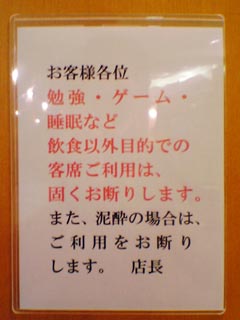 お客様各位
勉強・ゲーム・
睡眠など
飲食以外目的での
客席ご利用は、
固くお断りします。
また、泥酔の場合は、
ご利用をお断り
します。　店長